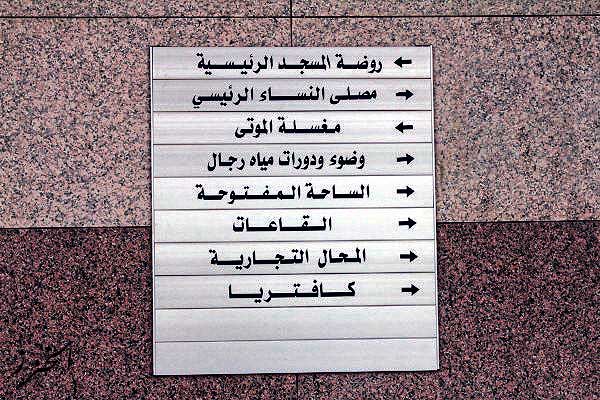 ← روضة المسجد الرئيسية
→ مصلى النساء الرئيسي
← مغسلة الموتى
→ وضوء ودورات مياه رجال
→ الساحة المفتوحة
→ القاعات
→ المحال التجارية
→ كافتريا